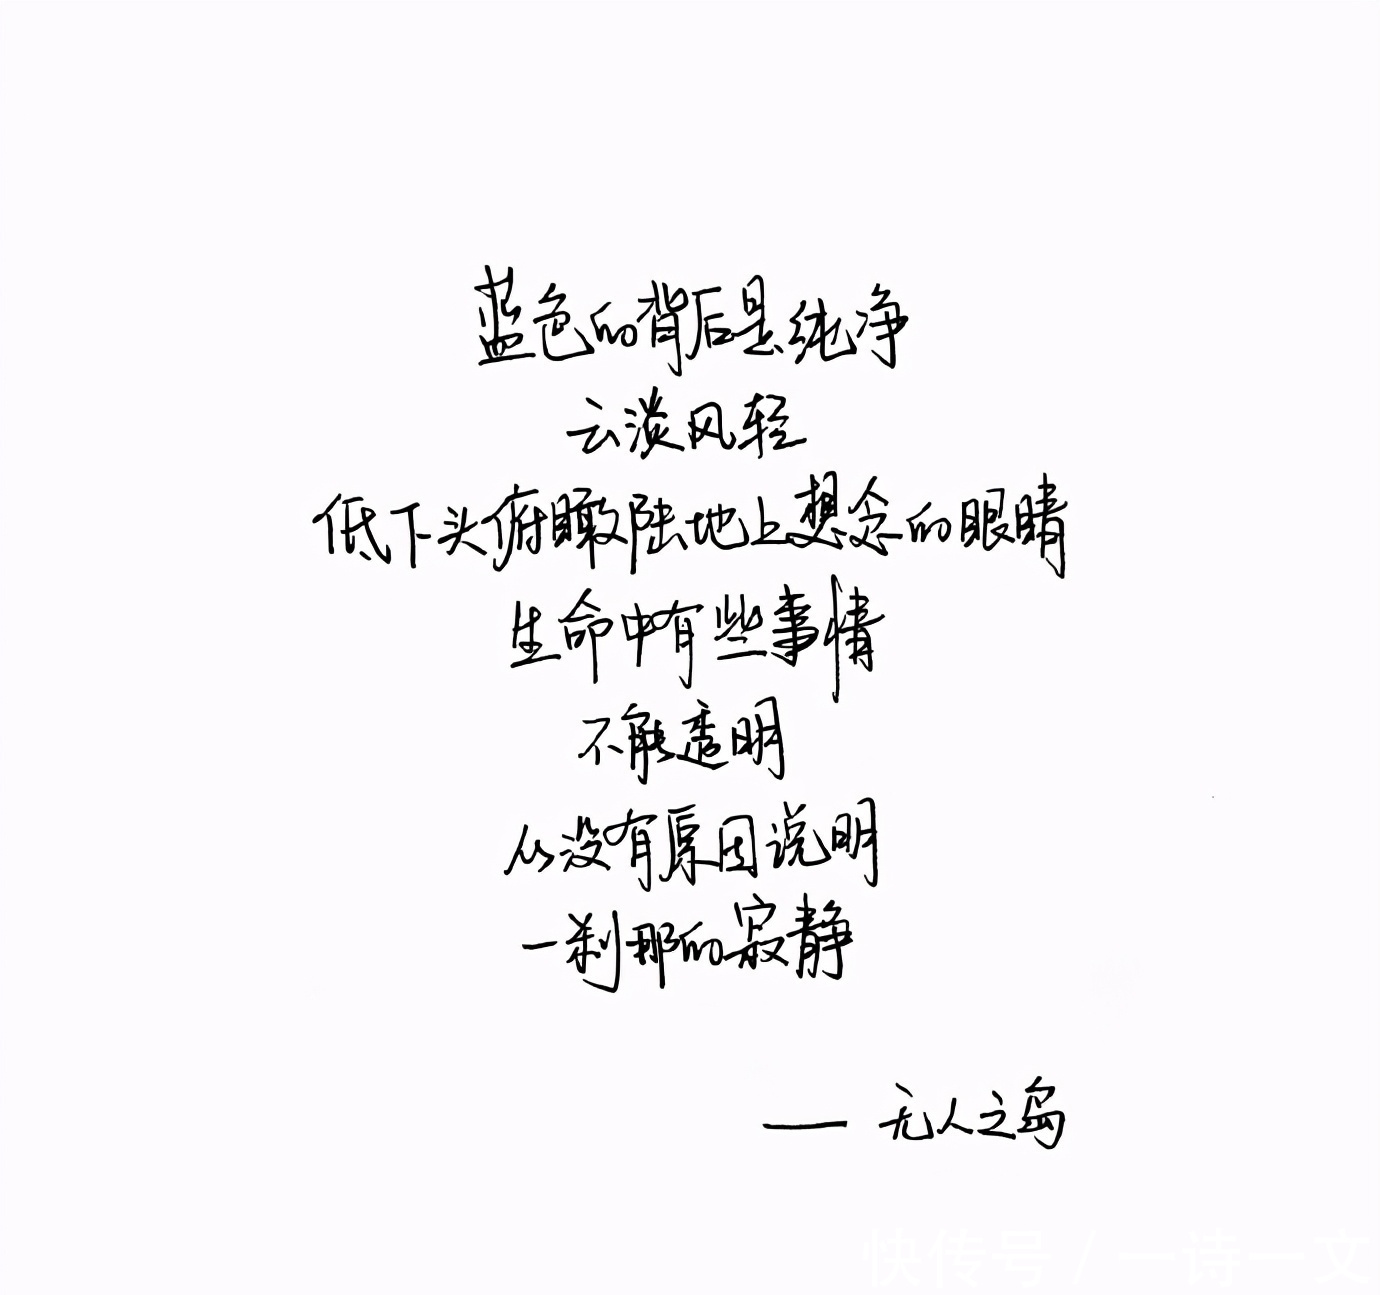 蓝色的背后是纯净
云淡风轻
低下头俯瞰陆地上想念的眼睛
生命中有些事情
不能透明
从没有原因说明
一刹那的寂静
—— 无人之岛
快传号 / 一诗一文